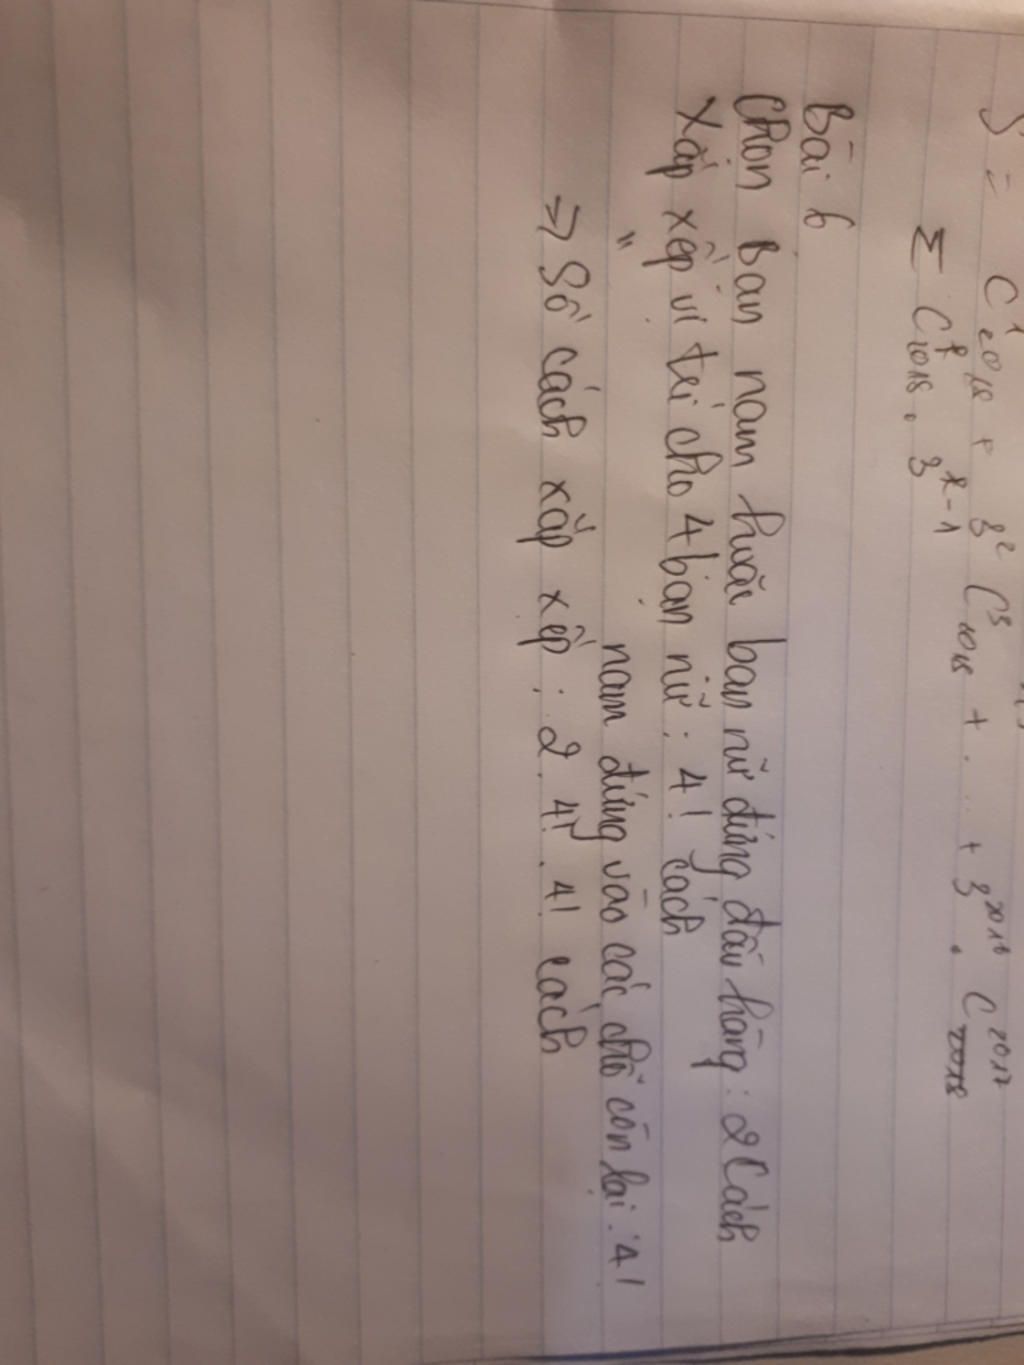 S = C¹₂₀₁₈ + 3² C³₂₀₁₈ + ... + 3²⁰¹⁶ . C²⁰¹⁷₂₀₁₈
Σ Cᵏ₂₀₁₈ . 3ᵏ⁻¹
Bài 6
Chọn bạn nam hoặc bạn nữ đứng đầu hàng : 2 cách
Xắp xếp vị trí cho 4 bạn nữ : 4! cách
" nam đứng vào các chỗ còn lại : 4!
=> Số cách xắp xếp : 2 . 4! . 4! cách